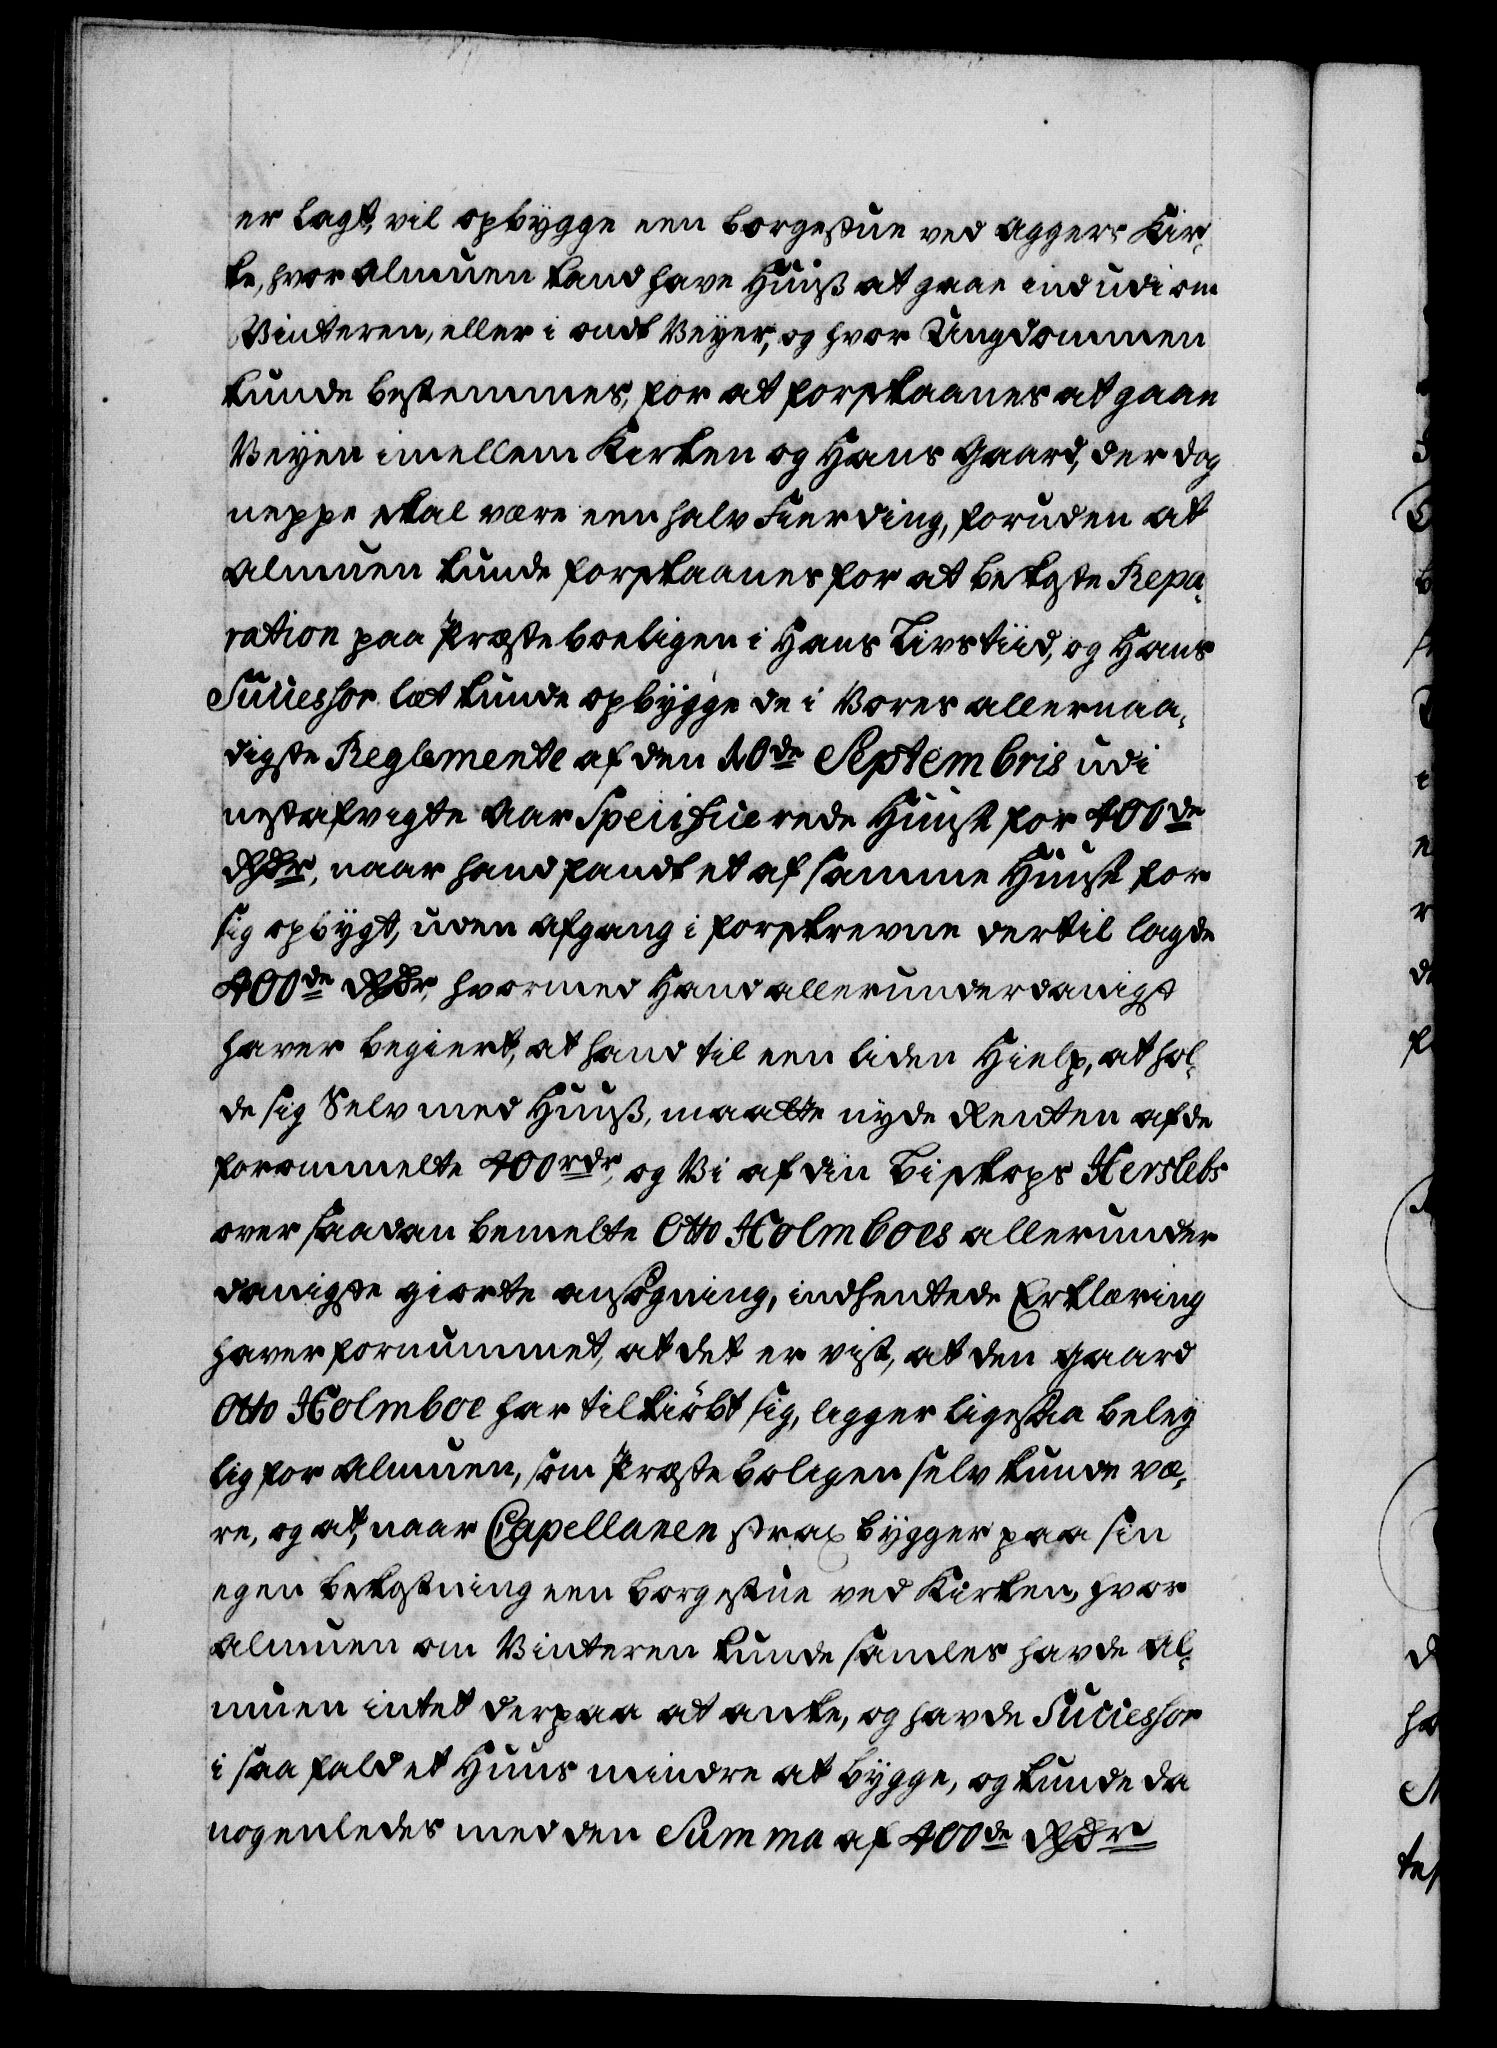 er lagt, vil opbygge een Borgestue ved Aggers Kir-
ke, hvor Almuen kand have Huuß at gaae ind udi om
Vinteren, eller i ondt Veyer, og hvor Ungdommen
kunde bestemmes, for at forskaanes at gaae
Veyen imellem Kirken og Hans Gaard, der dog
neppe skal være een halv Fierding, foruden at
Almuen kunde forskaanes for at bekoste Repa-
ration paa Præsteboeligen i Hans Livstiid, og Hans
Successor læt kunde opbygge de i Vores allernaa-
digste Reglemente af den 20de Septembris udi
nestafvigte Aar Specificerede Huuse for 400de
Rdr, naar hand fandt et af samme Huuse for
sig opbygt, uden afgang i forskrevne dertil lagde
400de Rdr, hvormed Hand allerunderdanigst
haver begiert, at hand til een liden Hielp, at hol-
de sig Selv med Huuß, maatte nyde Renten af de
forommelte 400 rdr, og Vi af din Biskops Herslebs
over saadan bemelte Otto Holmboes allerunder
danigste giorte ansøgning, indhentede Erklæring
haver fornummet, at det er vist, at den Gaard
Otto Holmboe har tilkiøbt sig, ligger ligesaa beley
lig for Almuen, som Præsteboligen selv kunde væ-
re, og at, naar Capellanen strax bygger paa sin
egen bekostning een Borgestue ved Kirken, hvor
Almuen om Vinteren kunde samles havde Al-
muen intet derpaa at anke, og havde Successor
i saa fald et Huus mindre at bygge, og kunde da
nogenledes med den Summa af 400de Rdr